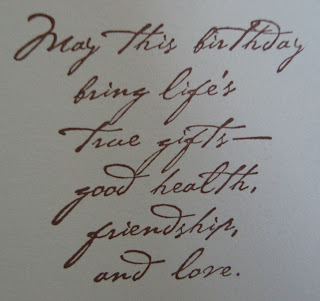 May this birthday
bring life's
true gifts—
good health,
friendship,
and love.